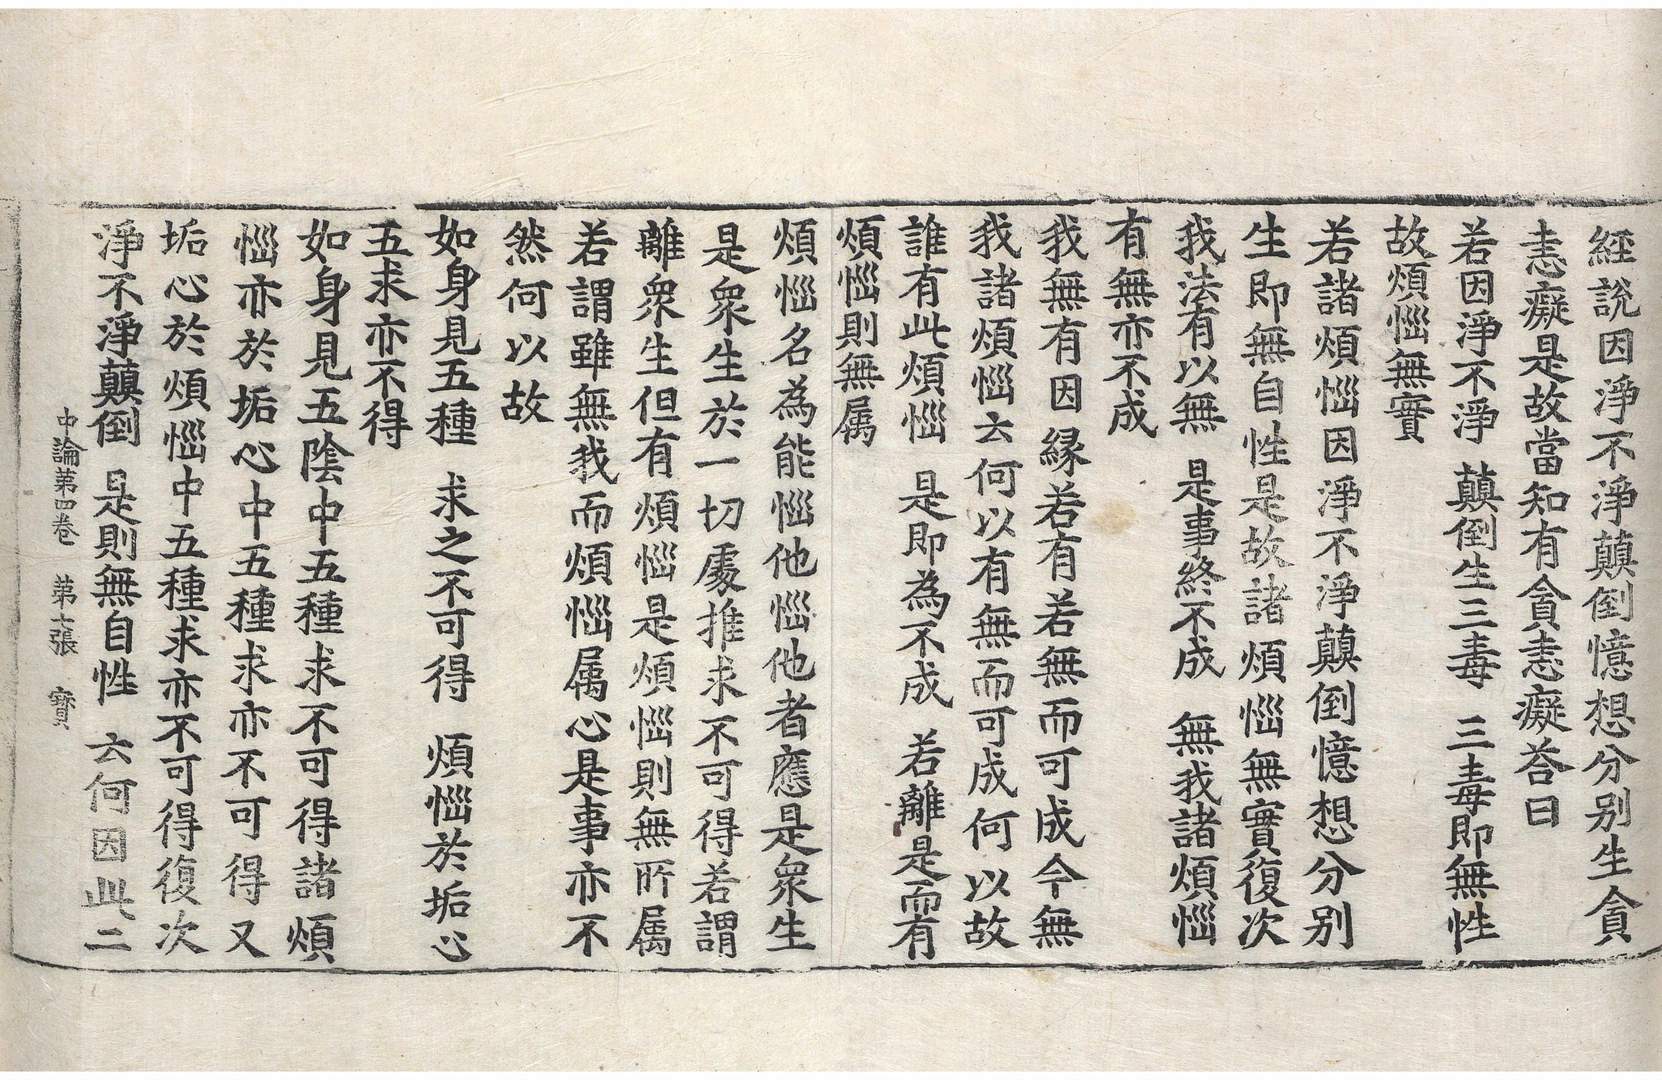 經說因淨不淨顚倒憶想分別生貪
恚癡是故當知有貪恚癡荅曰
若因淨不淨 顚倒生三毒 三毒即無性
故煩惱無實
若諸煩惱因淨不淨顚倒憶想分別
生即無自性是故諸煩惱無實復次
我法有以無 是事終不成 無我諸煩惱
有無亦不成
我無有因緣若有若無而可成今無
我諸煩惱云何以有無而可成何以故
誰有此煩惱 是即為不成 若離是而有
煩惱則無属
煩惱名為能惱他惱他者應是衆生
是衆生於一切處推求不可得若謂
離衆生但有煩惱是煩惱則無所属
若謂雖無我而煩惱属心是事亦不
然何以故
如身見五種 求之不可得 煩惱於垢心
五求亦不得
如身見五陰中五種求不可得諸煩
惱亦於垢心中五種求亦不可得又
垢心於煩惱中五種求亦不可得復次
淨不淨顚倒 是則無自性 云何因此二
中論第四卷 第七張 寳